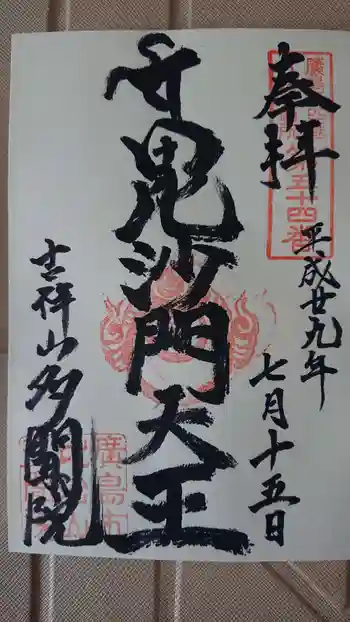 奉拝
第五十四番
平成廿九年
七月十五日
毘沙門天王
吉祥山多聞院
廣島市